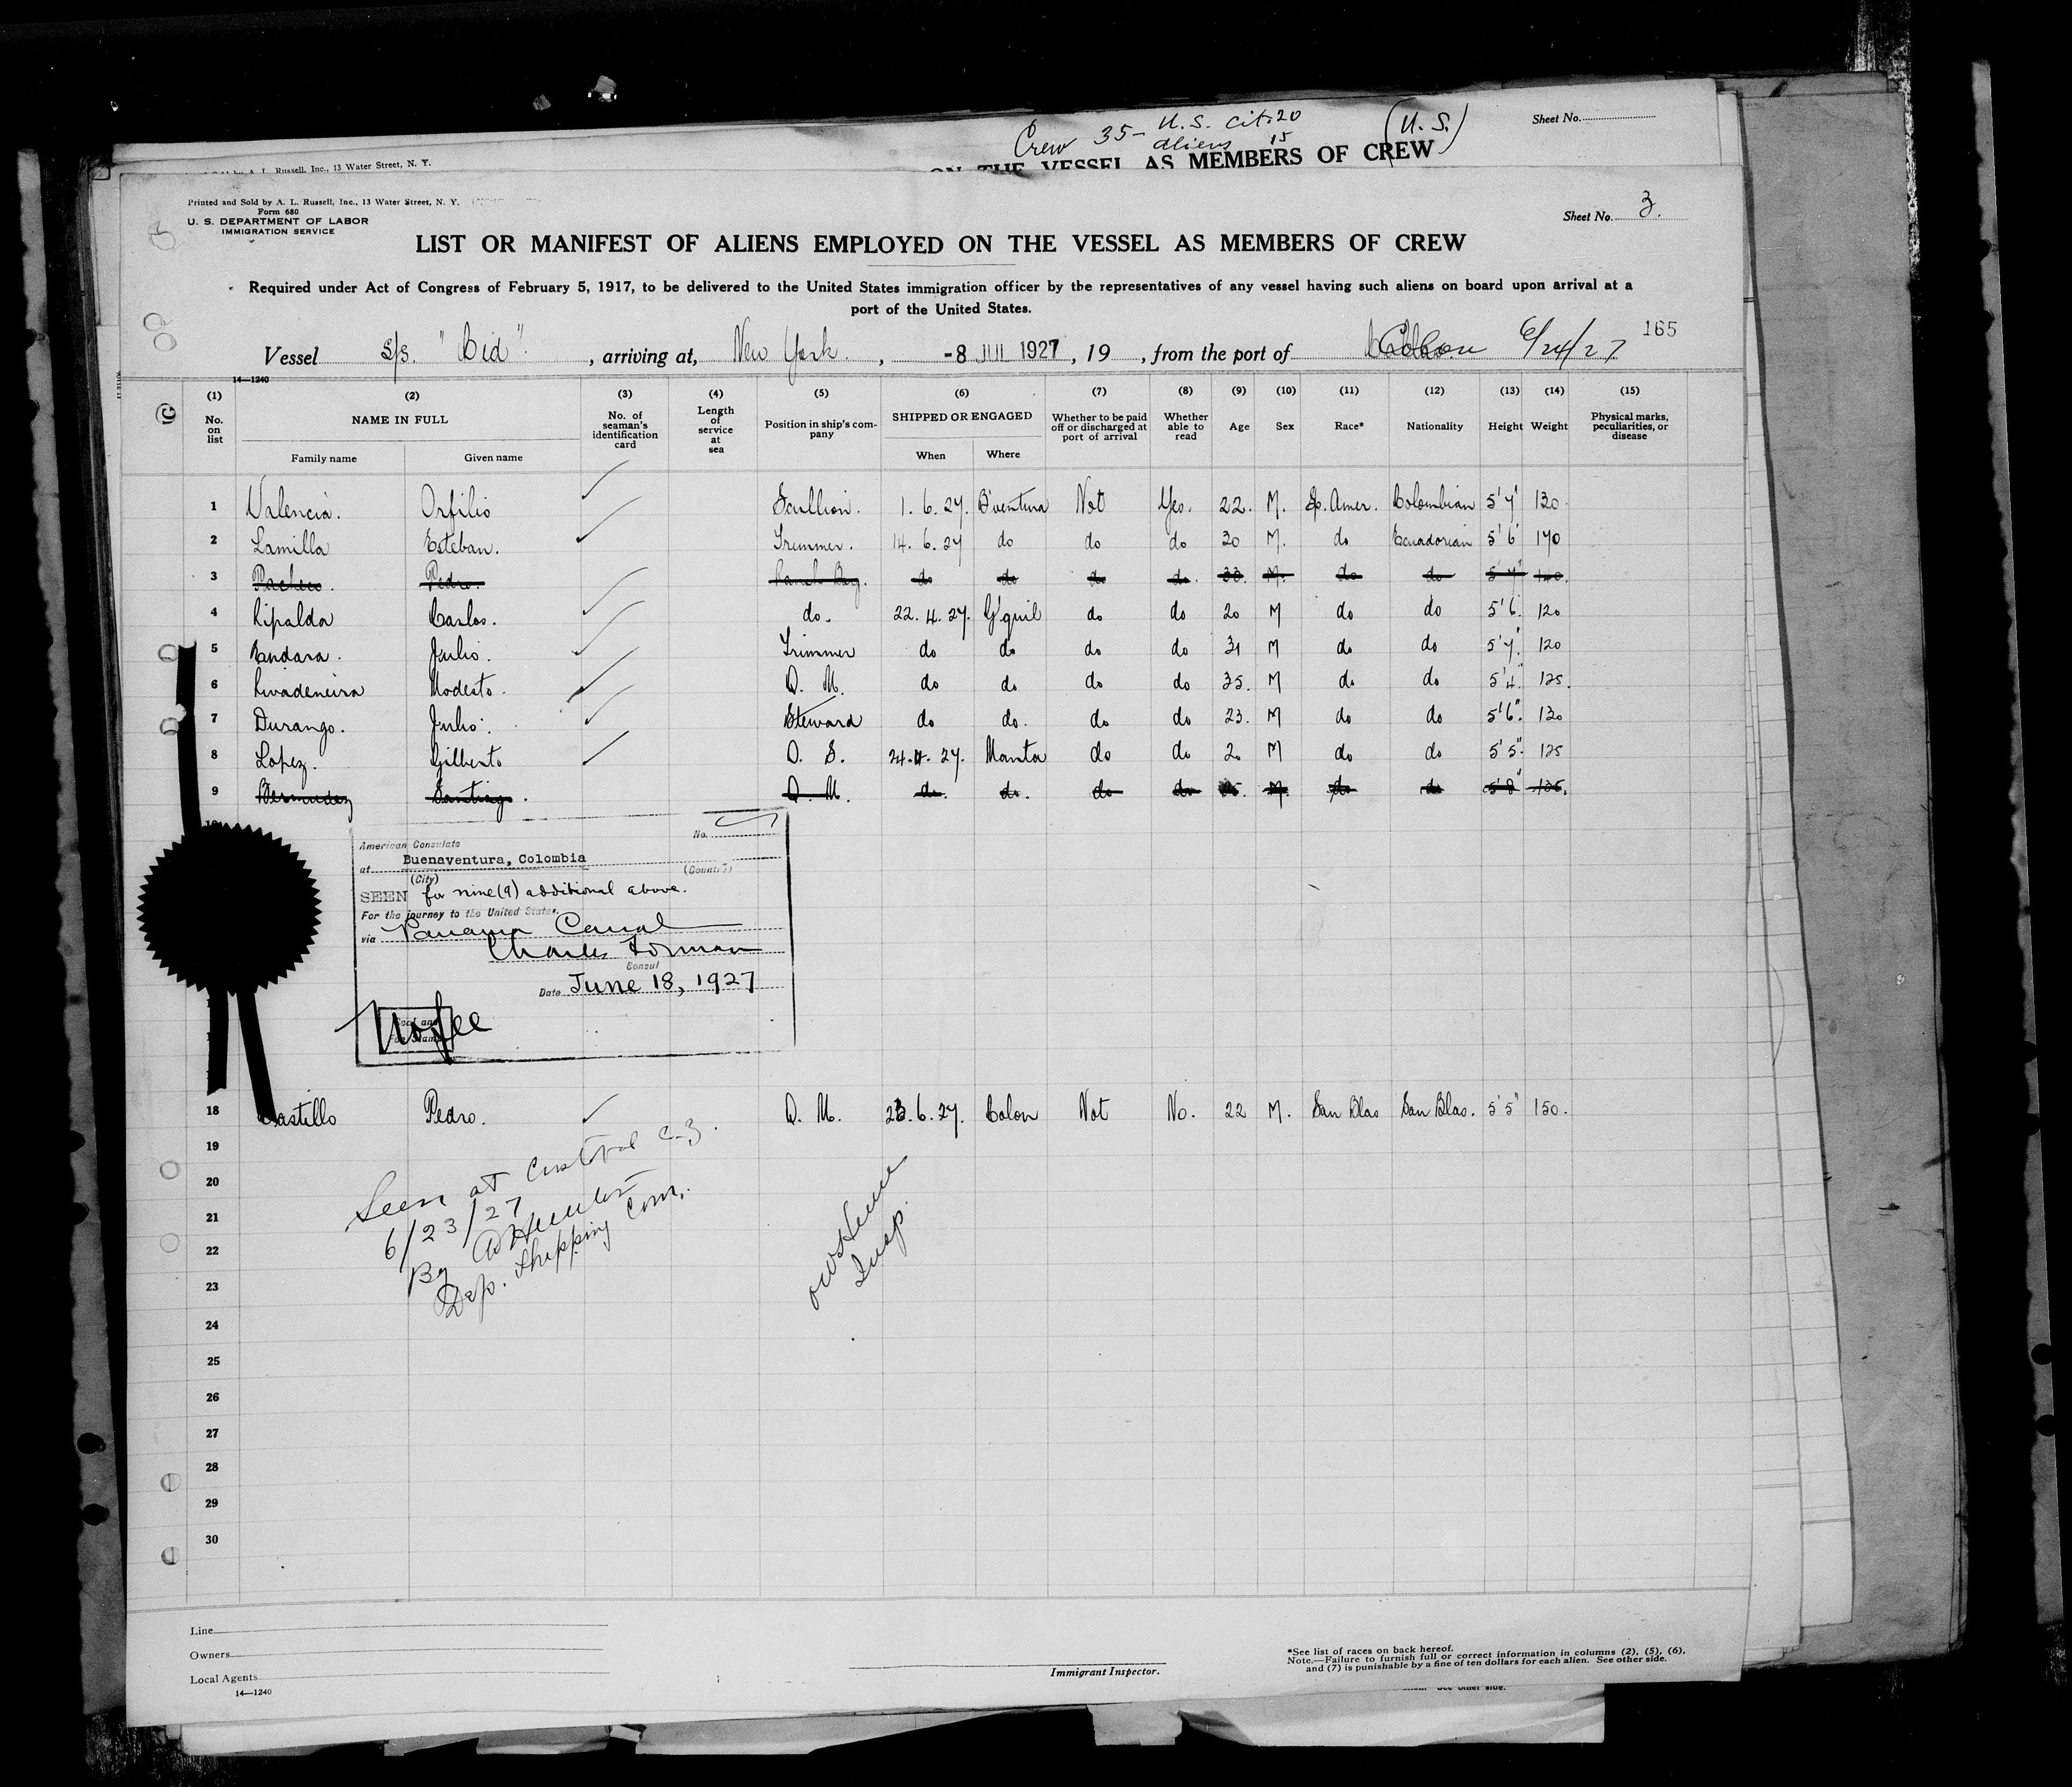 Crew 35- U.S. Cit. 20
aliens 15
(U.S.)
Sheet No.
A. L. Russell, Inc., 13 Water Street, N. Y.
ON THE VESSEL AS MEMBERS OF CREW
Printed and Sold by A. L. Russell, Inc., 13 Water Street, N. Y.
Form 680
U. S. DEPARTMENT OF LABOR
IMMIGRATION SERVICE
Sheet No. 3.
LIST OR MANIFEST OF ALIENS EMPLOYED ON THE VESSEL AS MEMBERS OF CREW
Required under Act of Congress of February 5, 1917, to be delivered to the United States immigration officer by the representatives of any vessel having such aliens on board upon arrival at a
port of the United States.
165
Vessel S/S. "Cid". , arriving at, New York. , -8 JUL 1927, 19 , from the port of Colon 6/24/27
14—1240
(1) (2) (3) (4) (5) (6) (7) (8) (9) (10) (11) (12) (13) (14) (15)
No. on list NAME IN FULL No. of seaman's identification card Length of service at sea Position in ship's company SHIPPED OR ENGAGED Whether to be paid off or discharged at port of arrival Whether able to read Age Sex Race* Nationality Height Weight Physical marks, peculiarities, or disease
Family name Given name When Where
1 Valencia. Orfilio Scullion. 1. 6. 27. B'ventura Not Yes. 22. M. Sp. Amer. Colombian 5'7" 130.
2 Lamilla Esteban. Trimmer. 14. 6. 27 do do do 30 M. do Ecuadorian 5'6 170
3 Pacheco. Pedro. do do do do. 33. M. do do 5'7"
4 Ripalda Carlos. do. 22. 4. 27. G'quil do do 20 M do do 5'6. 120
5 Andara. Julio. Trimmer do do do do 31 M do do 5'7." 120
6 Rivadeneira Modesto. Q. M. do do do do 35. M do do 5'4." 125.
7 Durango. Julio. Steward do do. do do 23. M do do 5'6". 130
8 Lopez. Gilberto O. S. 24.4. 27. Manta do do 20 M do do 5'5". 125
9 Bermudez Santiago. Q. M. do. do. do do M. do do 5'8" 135.
American Consulate No.
at Buenaventura, Colombia
(City) (Country)
SEEN for nine(9) additional above.
For the journey to the United States.
via Panama Canal
Charles Forman
Consul
Date June 18, 1927
No fee
18 Castillo Pedro. Q. M. 23. 6. 27. Colon Not No. 22 M. San Blas San Blas. 5'5" 150.
19
Seen at Cristobal C-Z.
20
6/23/27
21
By
22
Dep. Shipping Com.
Insp.
23
24
25
26
27
28
29
30
Line
Owners
Local Agents
14—1240
Immigrant Inspector.
*See list of races on back hereof.
Note.—Failure to furnish full or correct information in columns (2), (5), (6),
and (7) is punishable by a fine of ten dollars for each alien. See other side.
See other side.